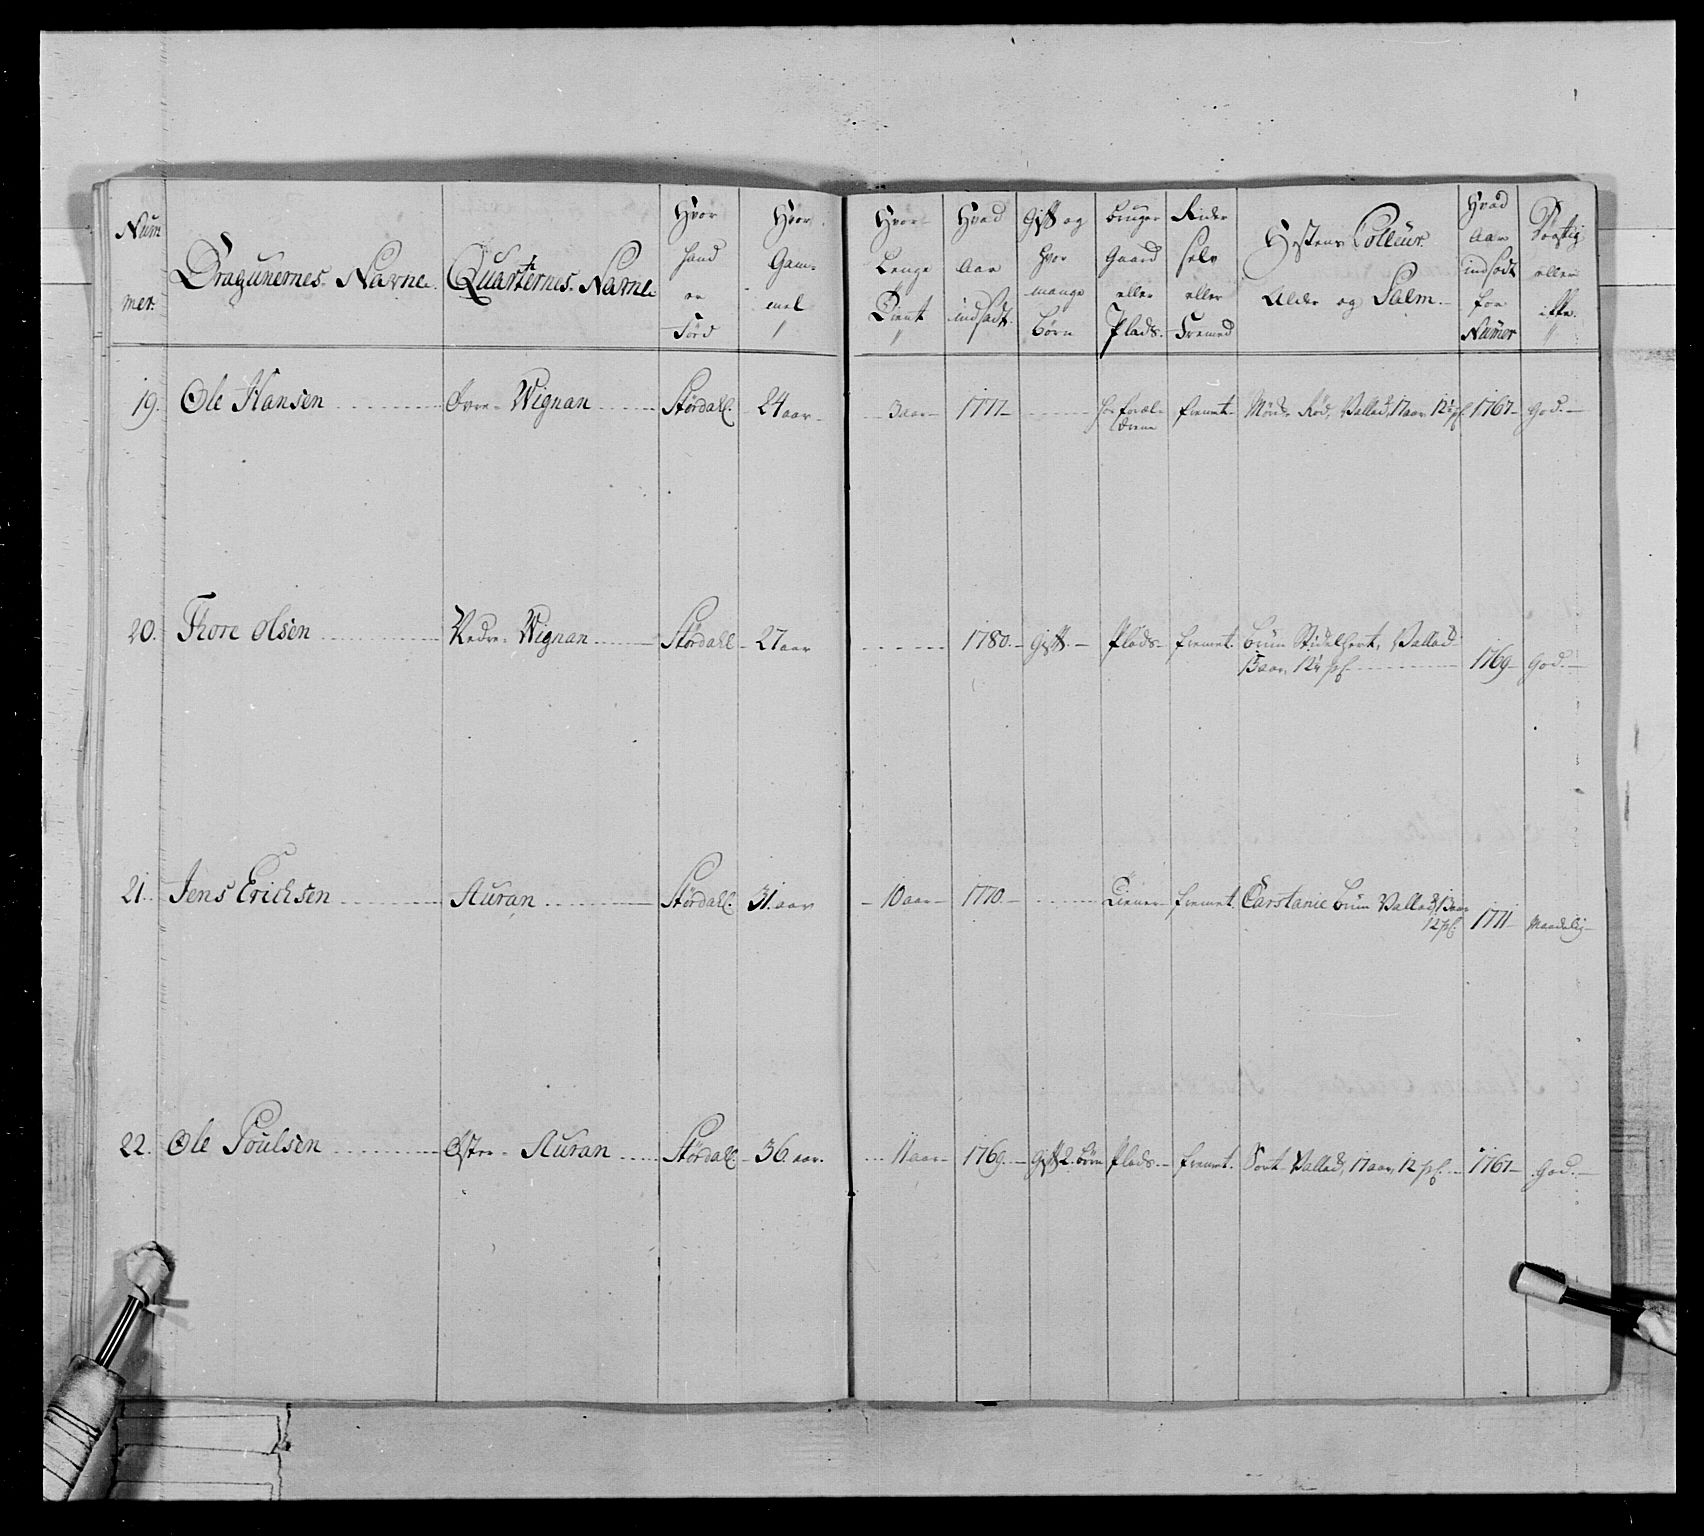 Num
mer.
Dragunernes Navne.
Quarternes Navne
Hvor
hand
er
Fød
Hvor
Gam-
mel
Hvor
Lenge
Tient
Hvad
Aar
indsadt.
Gift og
hvor
mange
børn
bruger
Gaard
eller
Plads.
Rider
selv
eller
Fremed
Hestens Colleur.
Alder og Palm.
Hvad
Aar
indsadt
for
Numer
Dögtig
eller
iche.
19. Ole Hansen Øvre Wignan Størdahl. 24 aar 3 aar 1777 fremet Rød, Vallad, 17 aar 1767 God.
20. Thore Olsen Nedre Wignan Størdahl 27 aar 1780. Gift. Plads fremet. brun Vallad
13 aar, 1769 God.
21. Jens Erichsen Auran Størdahl. 31. aar 10 aar 1770. Tiener fremet. Carstanie brun Vallad, 13 aar
12 pl. 1771 Maadelig
22. Ole Poulsen Øster Auran Størdahl 36. aar. 11 aar 1769. Gift 2. børn Plads fremet. Sort Vallad, 17 aar, 12 pl. 1767 God.